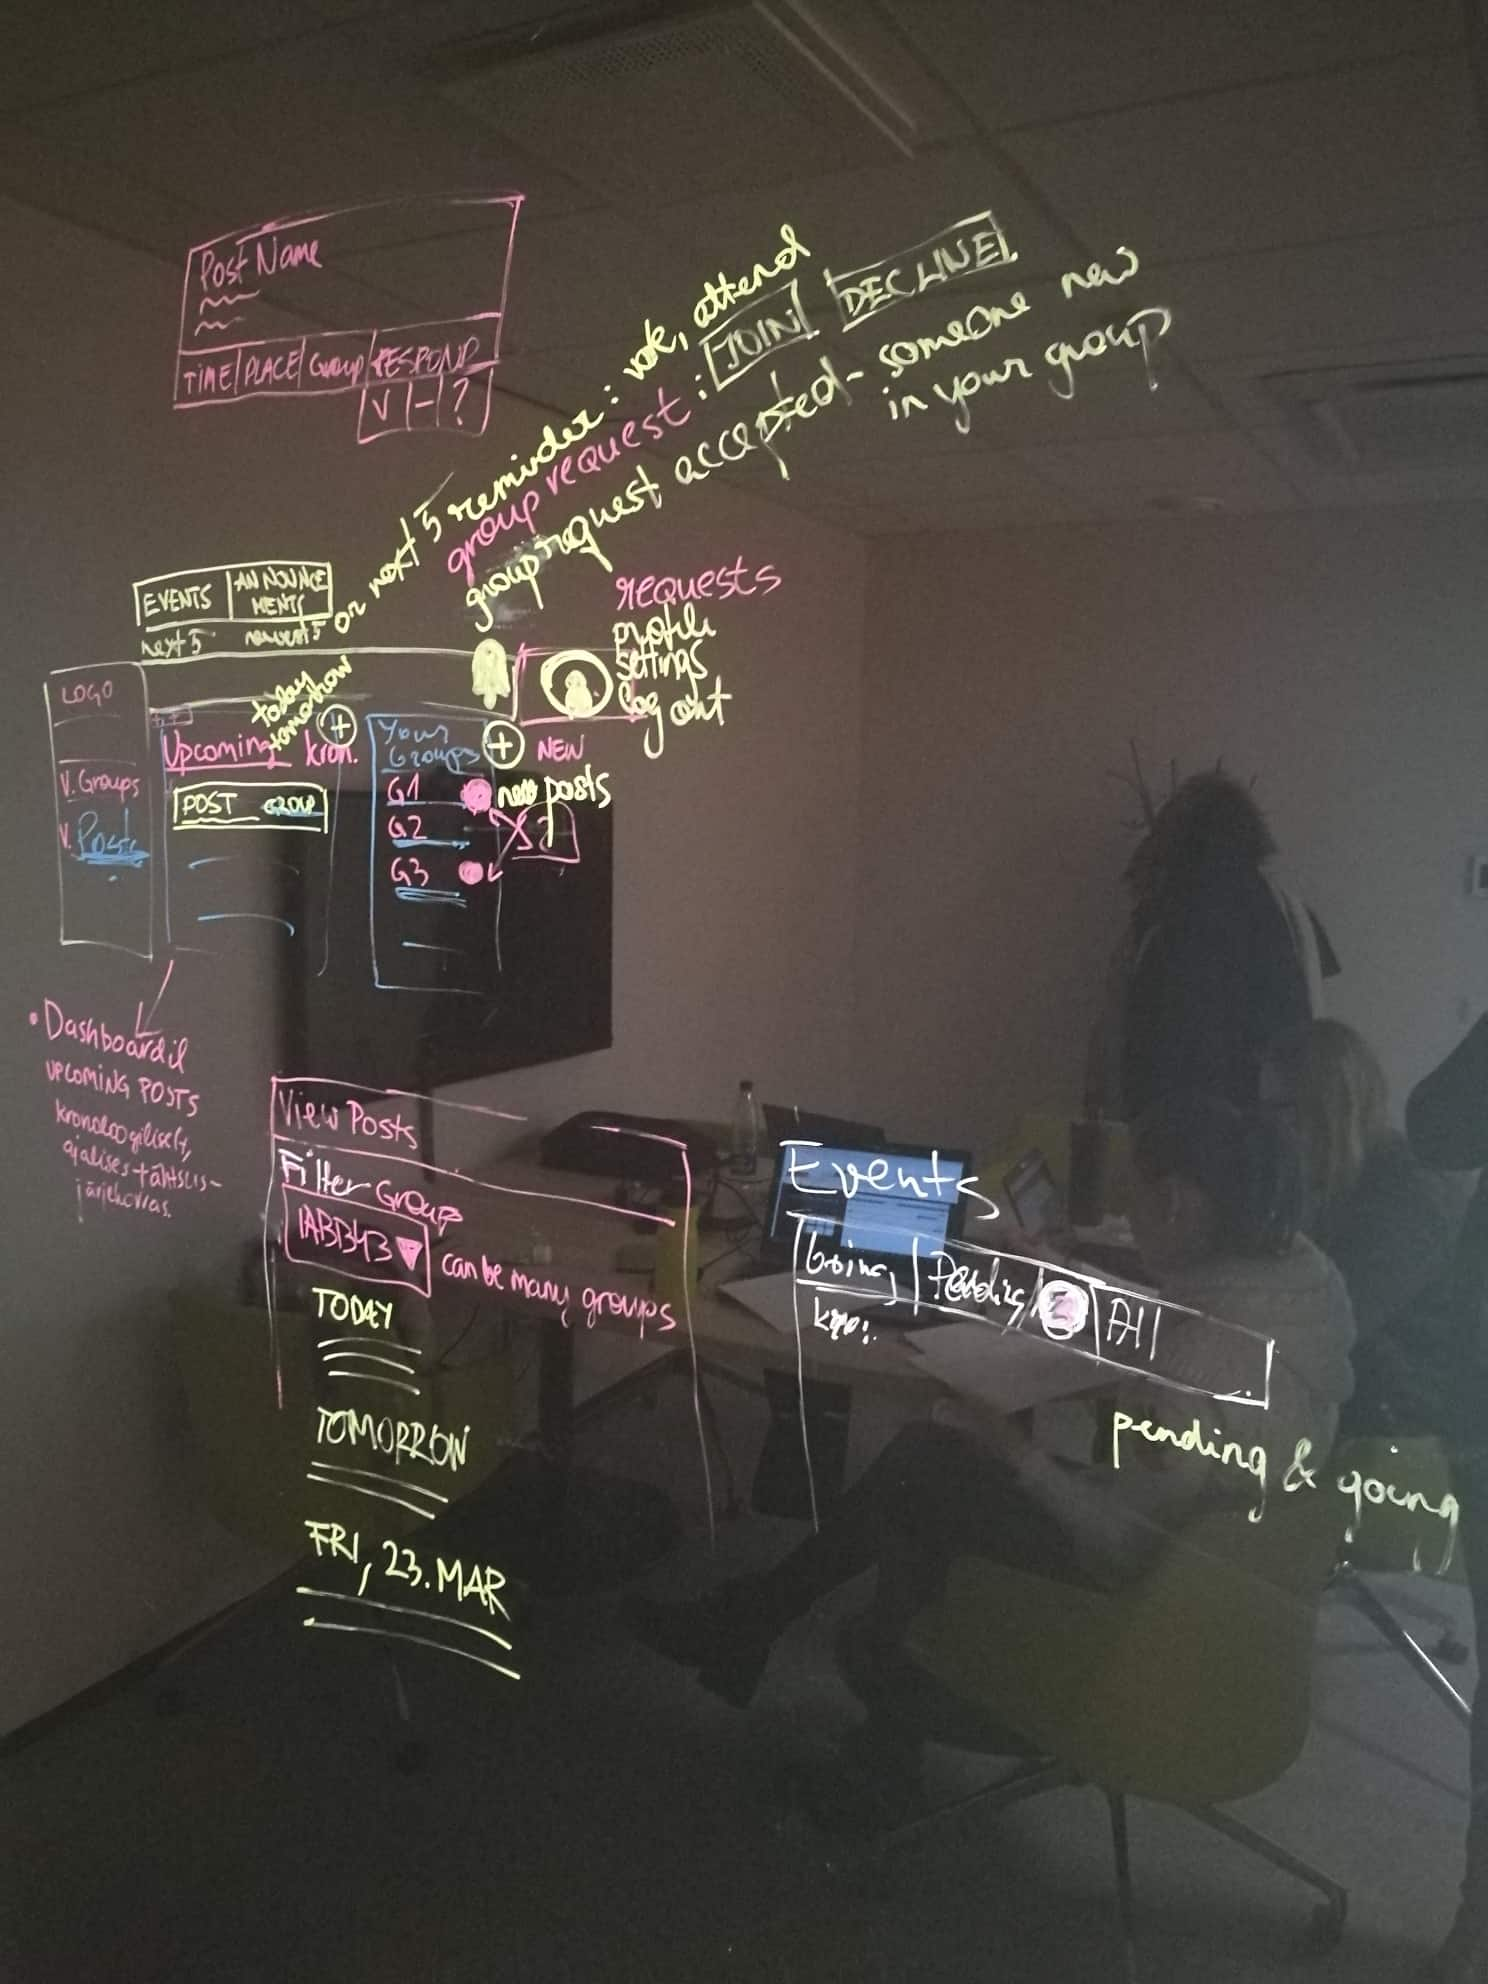 Post Name
TIME PLACE Group RESPOND
V - ?
or next 5 reminder: vote, attend
group request: JOIN DECLINE
group request accepted - someone new
in your group
EVENTS ANNOUNCE
MENTS
next 5 newest 5
requests
profile
settings
log out
LOGO
V. Groups
V. Posts
today
tomorrow
+
Upcoming kron.
POST GROUP
Your
Groups + NEW
G1 new posts
G2
G3
• Dashboardil
UPCOMING POSTS
kronoloogiliselt,
ajalises tähtsus-
järjekorras.
View Posts
Filter Group
IABB43 can be many groups
TODAY
TOMORROW
FRI, 23. MAR
Events
Going Pending 3 All
pending & going